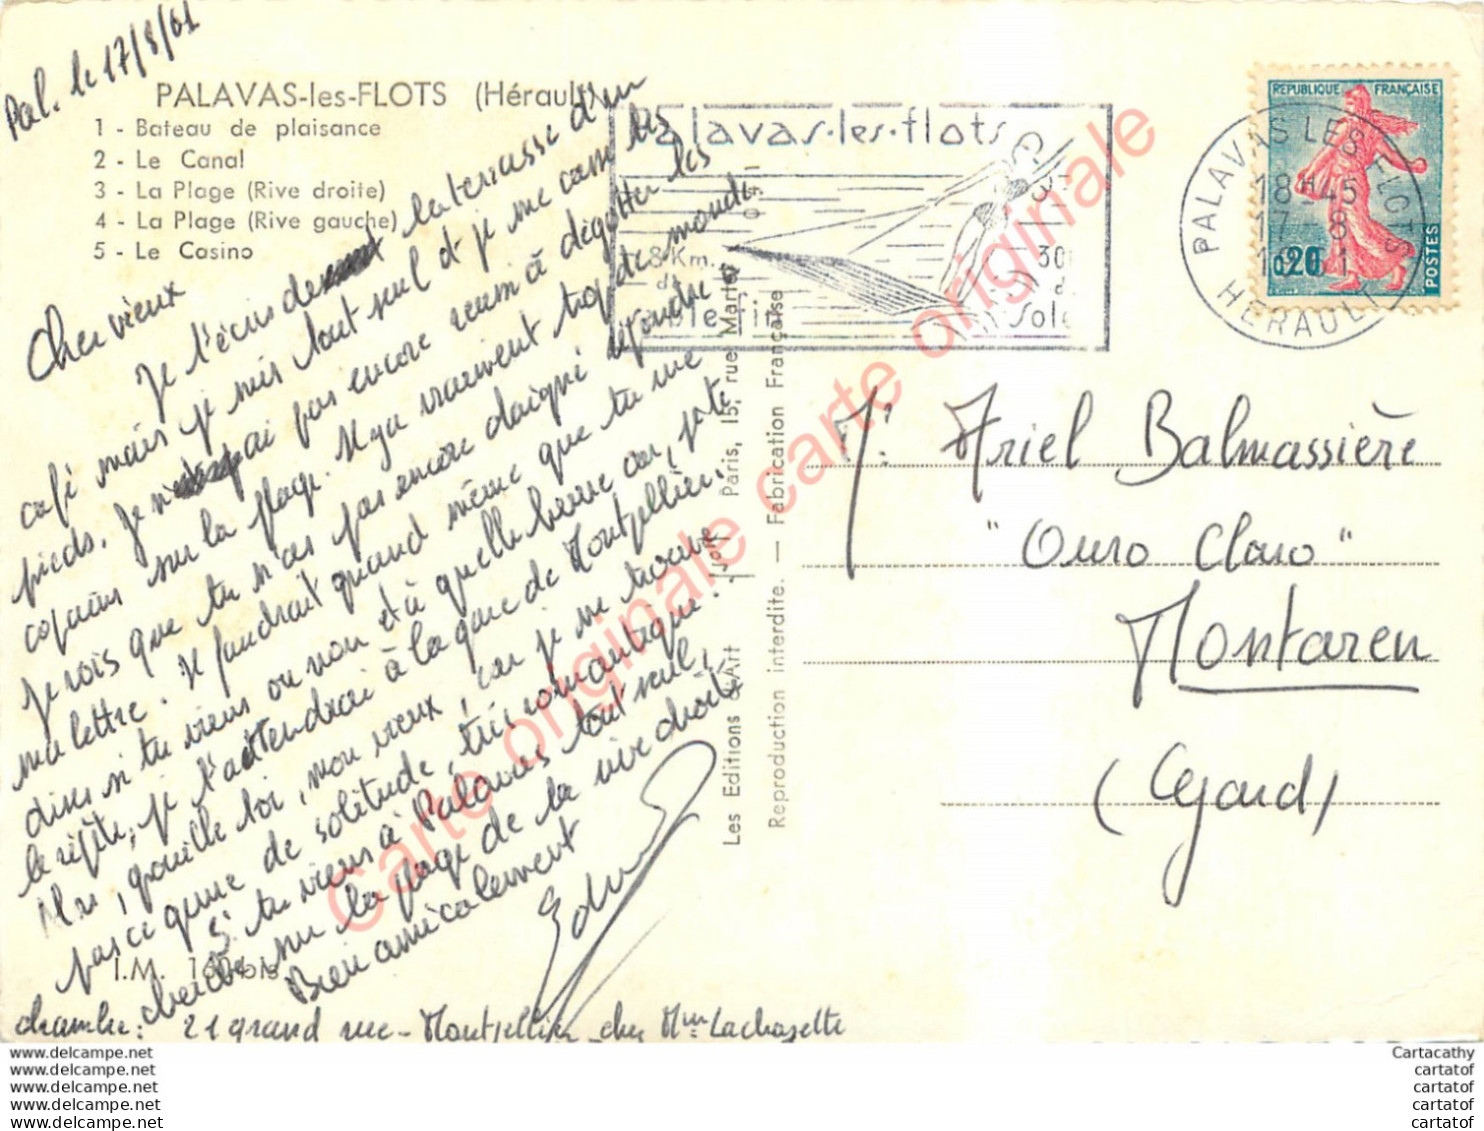 Pal. le 17/8/61
PALAVAS-les-FLOTS (Hérault)
1 - Bateau de plaisance
2 - Le Canal
3 - La Plage (Rive droite)
4 - La Plage (Rive gauche)
5 - Le Casino
Cher vieux
Je t'écris de la terrasse d'un
café mais je suis tout seul et je me casse les
pieds. Je n'ai pas encore réussi à dégotter les
copains sur la plage. Il y a vraiment trop de monde
Je vois que tu n'as pas encore daigné répondre à
ma lettre. Il faudrait quand même que tu me
dises si tu viens ou non et à quelle heure car, je te
le répète, je t'attendrai à la gare de Montpellier.
grouille toi, mon vieux, car je me trouve
parce que de solitude, très romantique.
Si tu viens à Palavas tout seul,
cherche sur la plage de la rive droite
Bien amicalement
I.M. 160 bis
chambre: 21 grand rue - Montpellier chez Mme Lachazette
Les Editions d'Art "Yvon" Paris, 15, rue Martel
Reproduction interdite. — Fabrication Française
Palavas-les-flots
8 Km.
Soleil
REPUBLIQUE FRANÇAISE
0,20
POSTES
PALAVAS LES FLOTS
18H45
17-8
HERAULT
Mr Ariel Balmassière
"Ouro Claro"
Montaren
(Gard)
Carte originale carte originale
www.delcampe.net
www.delcampe.net
www.delcampe.net
www.delcampe.net
www.delcampe.net
Cartacathy
cartatof
cartatof
cartatof
cartatof